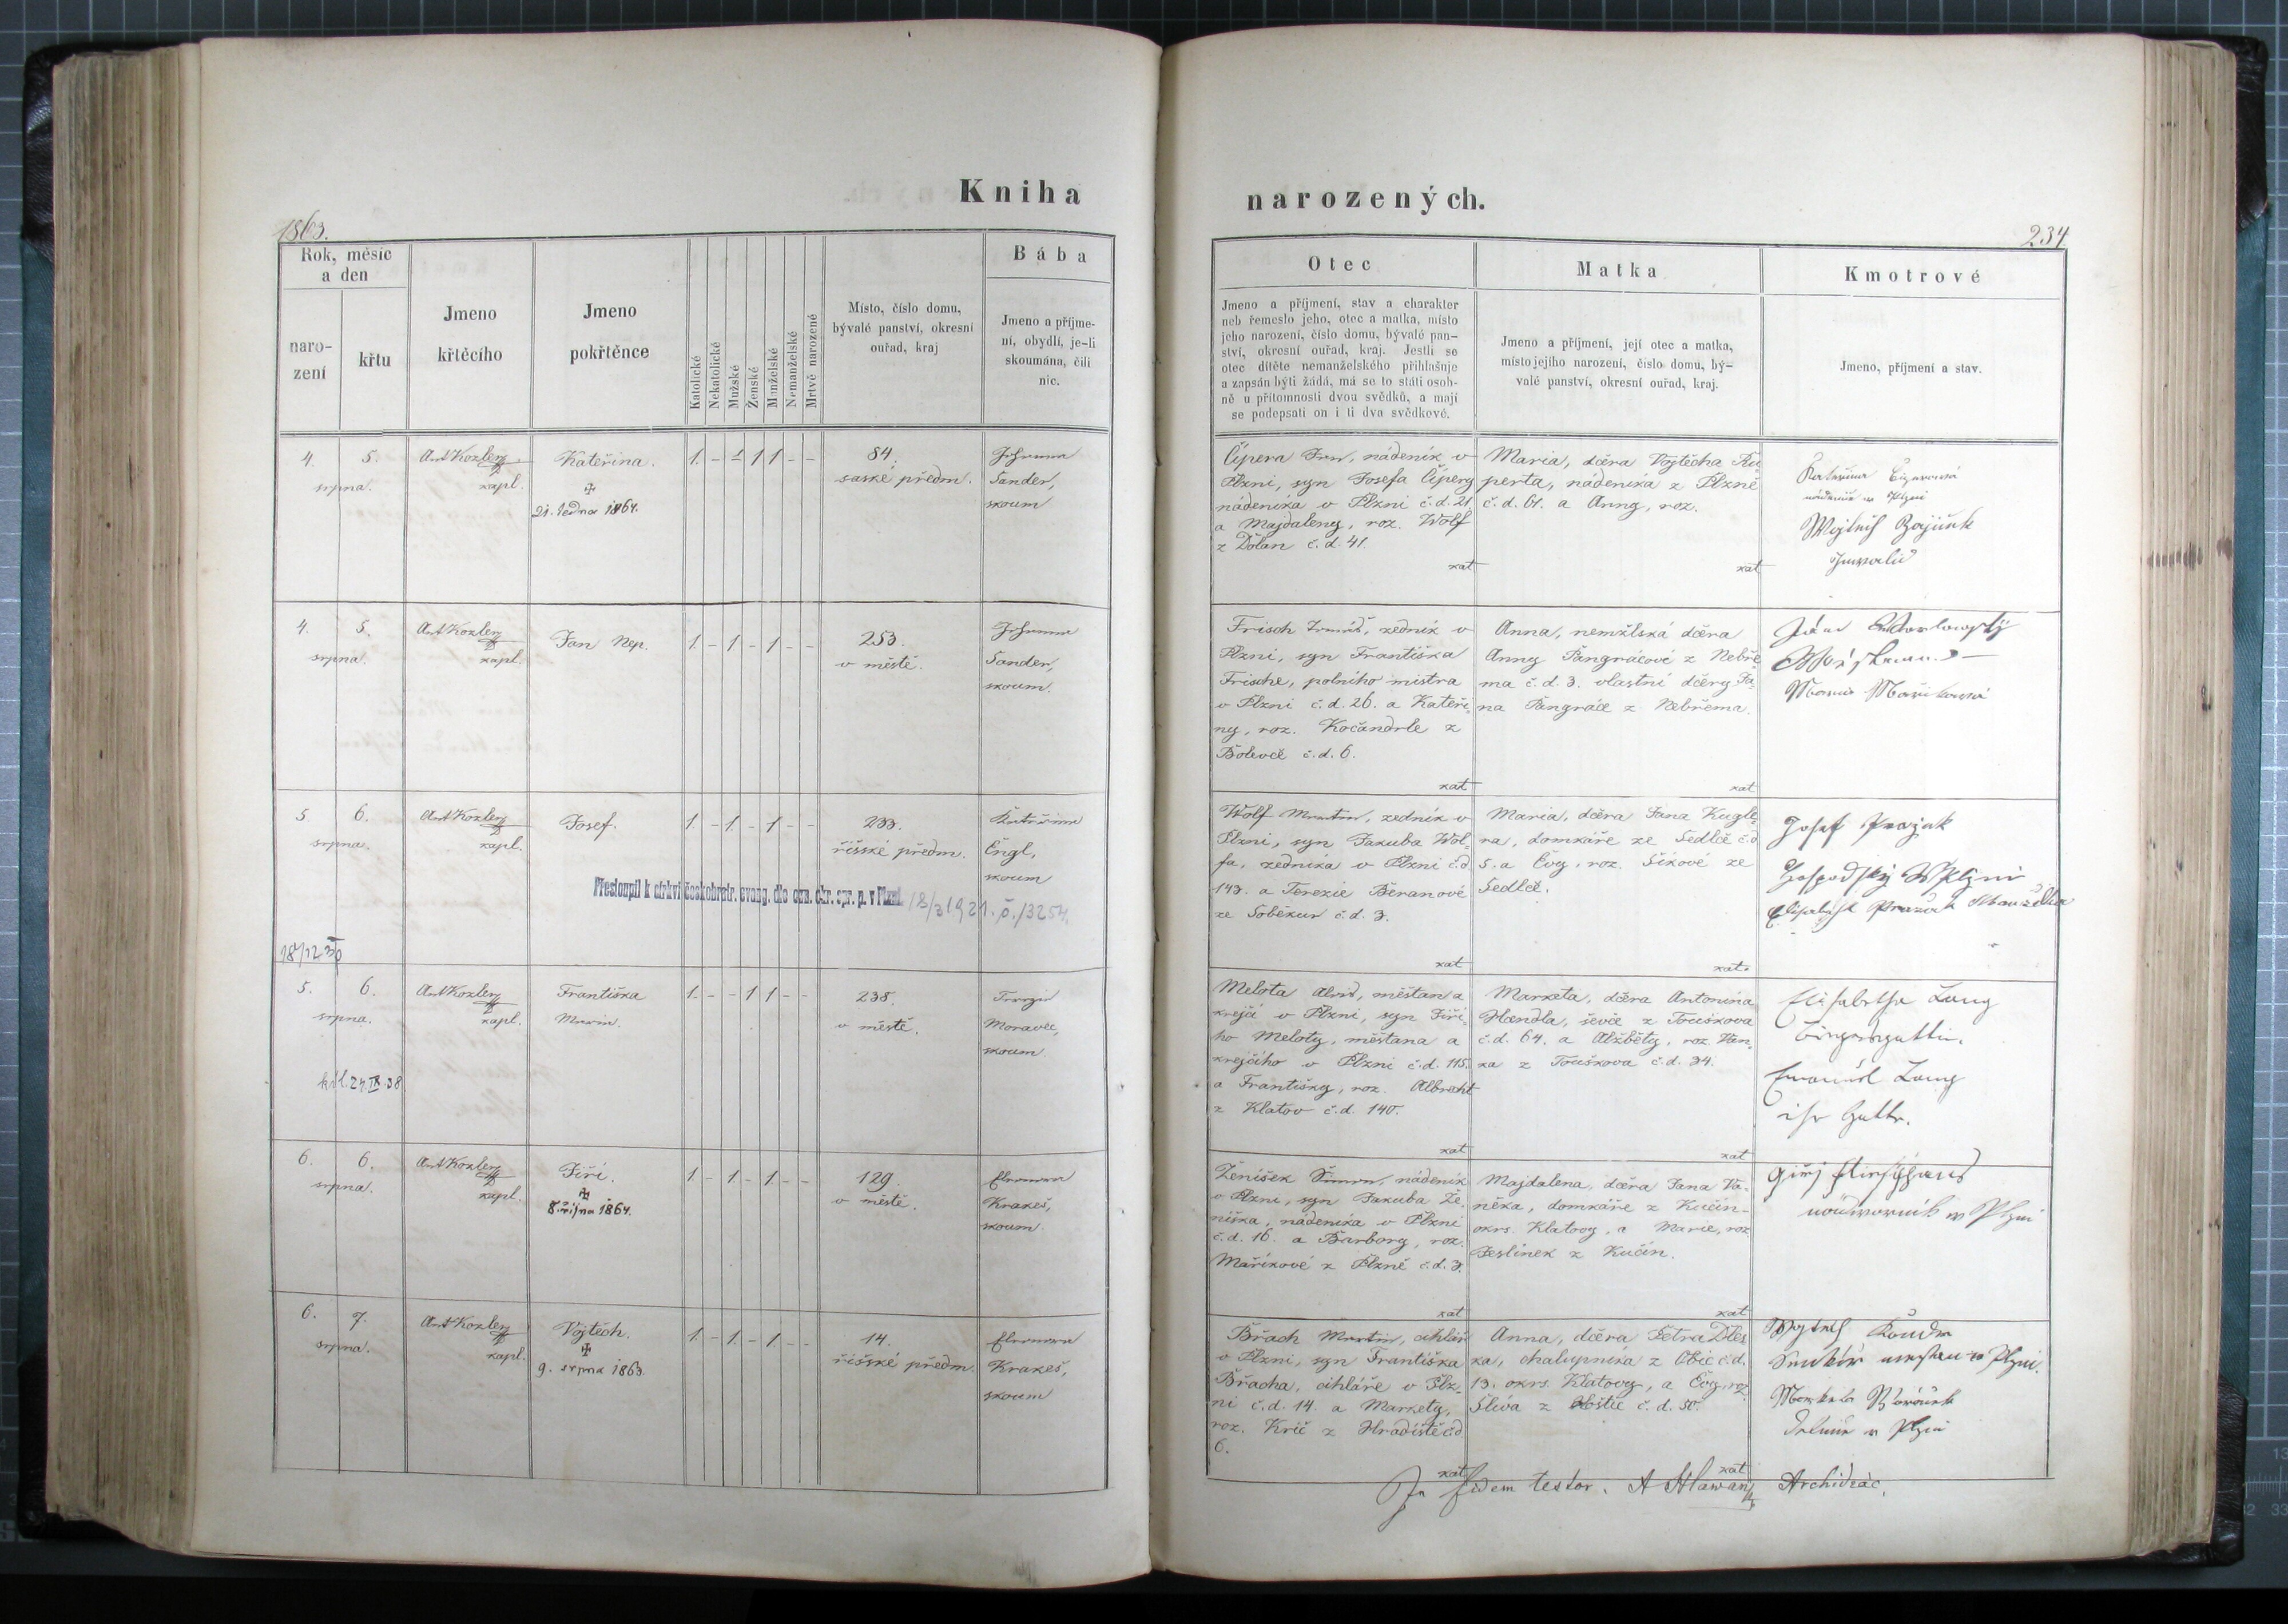 Kniha
1863.
Rok, měsíc
a den
naro-
zení
křtu
Jmeno
křtěcího
Jmeno
pokřtěnce
Katolické
Nekatolické
Mužské
Ženské
Manželské
Nemanželské
Mrtvě narozené
Místo, číslo domu,
bývalé panství, okresní
ouřad, kraj
Bába
Jmeno a příjme-
ní, obydlí, je-li
skoumána, čili
nic.
4. 5. Ant Kozler Kateřina. 1. - - 1 1 - - 84. Johanna
srpna. kapl. saské předm. Sander,
21. ledna 1864. skoum
4. 5. Ant Kozler Jan Nep. 1 - 1 - 1 - - 253. Johanna
srpna. kapl. v městě. Sander,
skoum.
5. 6. Ant Kozler Josef. 1 - 1 - 1 - - 233.
srpna. kapl. říšské předm. Engl,
skoum
Přestoupil k církvi českobratr. evang. dle ozn. okr. spr. p. v Plzni 18/3 1921. č./3254.
18/12 30
5. 6. Ant Kozler Františka 1 - - 1 1 - - 238. Terezie
srpna. kapl. Marie. v městě. Moravec,
skoum.
24. IX. 38
6. 6. Ant Kozler Jiří. 1 - 1 - 1 - - 129. Eleonora
srpna. kapl. v městě. Krakeš,
8. října 1864. skoum.
6. 7. Ant Kozler Vojtěch. 1 - 1 - 1 - - 14. Eleonora
srpna. kapl. říšské předm. Krakeš,
9. srpna 1863. skoum
narozených.
234
Otec
Jmeno a příjmení, stav a charakter
neb řemeslo jeho, otec a matka, místo
jeho narození, číslo domu, bývalé pan-
ství, okresní ouřad, kraj. Jestli se
otec dítěte nemanželského přihlašuje
a zapsán býti žádá, má se to státi osob-
ně u přítomnosti dvou svědků, a mají
se podepsati on i ti dva svědkové.
Matka
Jmeno a příjmení, její otec a matka,
místo jejího narození, číslo domu, bý-
valé panství, okresní ouřad, kraj.
Kmotrové
Jmeno, příjmení a stav.
Čipera Jan, nádeník v
Plzni, syn Josefa Čipery
nádeníka v Plzni č. d. 21.
a Majdaleny, roz. Wolf
z Dolan č. d. 41.
kat
Maria, dcera Vojtěcha Ru-
perta, nádeníka z Plzně
č. d. 61. a Anny, roz.
kat
Kateřina Čiperová
nádenice w Plzni
Wojtěch
Invalid
Frisch Tomáš, zedník v
Plzni, syn Františka
Frische, polního mistra
v Plzni č. d. 26. a Kateři-
ny, roz. Kočandrle z
Bolevce č. d. 6.
kat
Anna, nemžlská dcera
Anny Pangrácové z Nebře-
ma č. d. 3. vlastní dcery Ja-
na Pangráce z Nebřema.
kat
Marie Mařikowá
Wolf Martin, zedník v
Plzni, syn Jakuba Wol-
fa, zedníka v Plzni č. d.
143. a Terezie Beranové
ze Soběkur č. d. 3.
kat
Maria, dcera Jana Kugle-
ra, domkáře ze Sedlce č. d.
5. a Evy, roz. Šikové ze
Sedlce.
kat.
Josef Pražak
Hospodský W Plzni
Elisabeth Pražak Manželka
Melota Alois, měšťan a
krejčí v Plzni, syn Jiří-
ho Meloty, měšťana a
krejčího v Plzni č. d. 115.
a Františky, roz. Albrecht
z Klatov č. d. 140.
kat
Marketa, dcera Antonína
Haendla, ševce z Touškova
č. d. 64. a Alžběty, roz. Han-
ka z Touškova č. d. 34.
kat
Elisabetha Lang
Bürgersgattin.
Emanuel Lang
ihr Gatte.
Ženíšek Šimon, nádeník
v Plzni, syn Jakuba Že-
níška, nádeníka v Plzni
č. d. 16. a Barbory, roz.
Maříkové z Plzně č. d. 3.
kat
Majdalena, dcera Jana Va-
něka, domkáře z Kučin
okrs. Klatovy, a Marie, roz
Jeslínek z Kučin.
kat
w Plzni
Břach Martin, cihlář
v Plzni, syn Františka
Břacha, cihláře v Plz-
ni č. d. 14. a Markety,
roz. Krič z Hradiště č. d.
6.
kat
Anna, dcera Petra Dles-
ka, chalupníka z Obic č. d.
13. okrs. Klatovy, a Evy, roz
Slíva z Hoštic č. d. 30.
kat
Wojtěch
w Plzni.
w Plzni
In fidem testor. A Hlawan Archidiac.